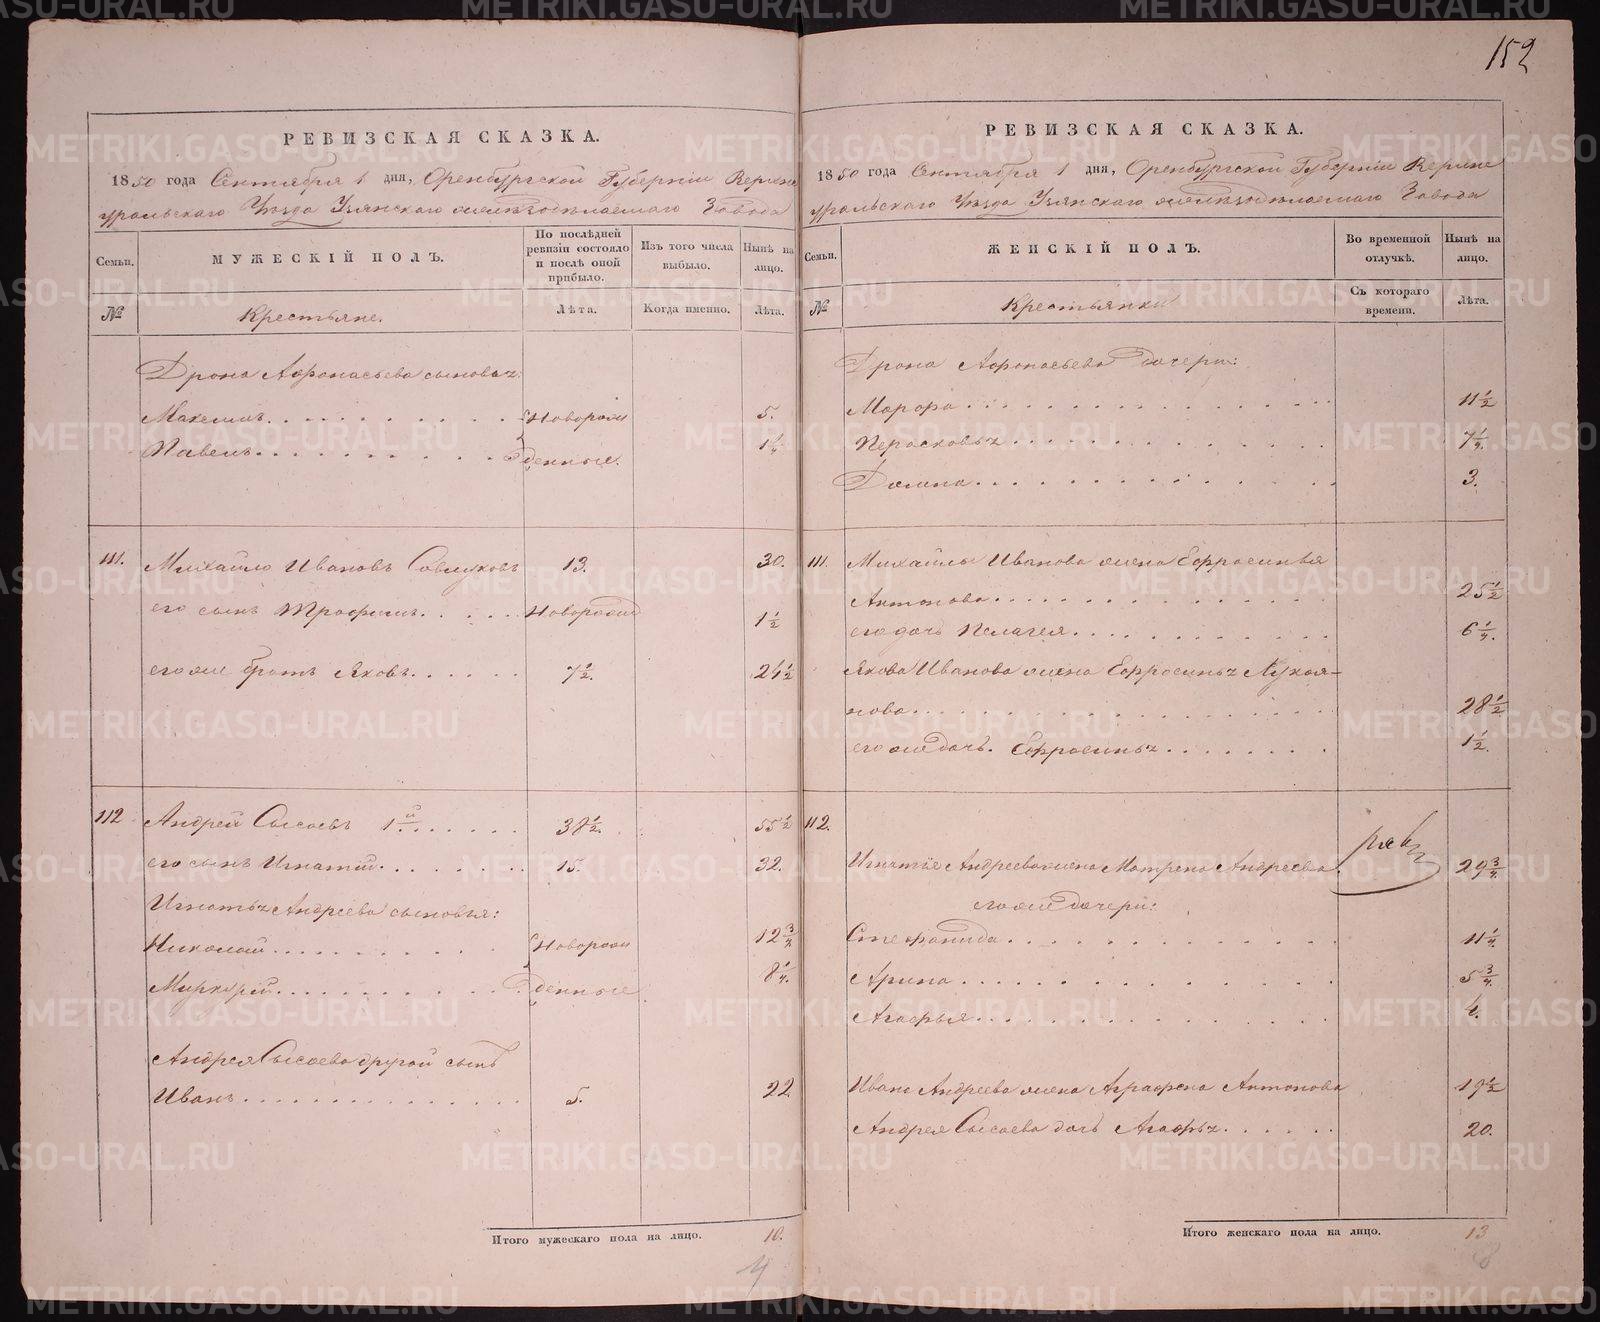 152
РЕВИЗСКАЯ СКАЗКА.
1850 года Сентября 1 дня, Оренбургской Губерніи Верхне
уральскаго Уѣзда Узянскаго желѣзодѣлаемаго Завода
Семьи.
МУЖЕСКІЙ ПОЛЪ.
По послѣдней ревизіи состояло и послѣ оной прибыло.
Изъ того числа выбыло.
Нынѣ на лицо.
№
Крестьяне.
Лѣта.
Когда именно.
Лѣта.
Дрона Афонасьева сыновья:
Максимъ Новорож 5.
Павелъ денные. 1¼
111. Михайло Ивановъ 13. 30.
его сынъ Трофимъ Новорожд 1½
его же братъ Яковъ 7½. 24½
112 Андрей Сысоевъ 1й 38½. 55½
его сынъ Игнатій 15. 32.
Игнатья Андреева сыновья:
Николай Новорож 12¾
Меркурій денные 8¼.
Андрея Сысоева другой сынъ
Иванъ 5. 22.
Итого мужескаго пола на лицо. 10.
РЕВИЗСКАЯ СКАЗКА.
1850 года Сентября 1 дня, Оренбургской Губерніи Верхне
уральскаго Уѣзда Узянскаго желѣзодѣлаемаго Завода
Семьи.
ЖЕНСКІЙ ПОЛЪ.
Во временной отлучкѣ.
Нынѣ на лицо.
№
Крестьянки
Съ котораго времени.
Лѣта.
Дрона Афонасьева дочери:
Марфа 11½
Парасковья 7¼.
Домна 3.
111. Михайлы Иванова жена Ефросинья
Антонова 25½
его дочь Пелагея 6¼.
Якова Иванова жена Ефросинья Лукоя-
нова 28½
его же дочь Ефросинья 1½.
112. Игнатія Андреева жена Матрена Андреева 29¾
его же дочери:
Стефанида 11¼
Арина 5¾
Агафья
Ивана Андреева жена Аграфена Антонова 19½
Андрея Сысоева дочь Агафья 20.
Итого женскаго пола на лицо. 13
METRIKI.GASO-URAL.RU